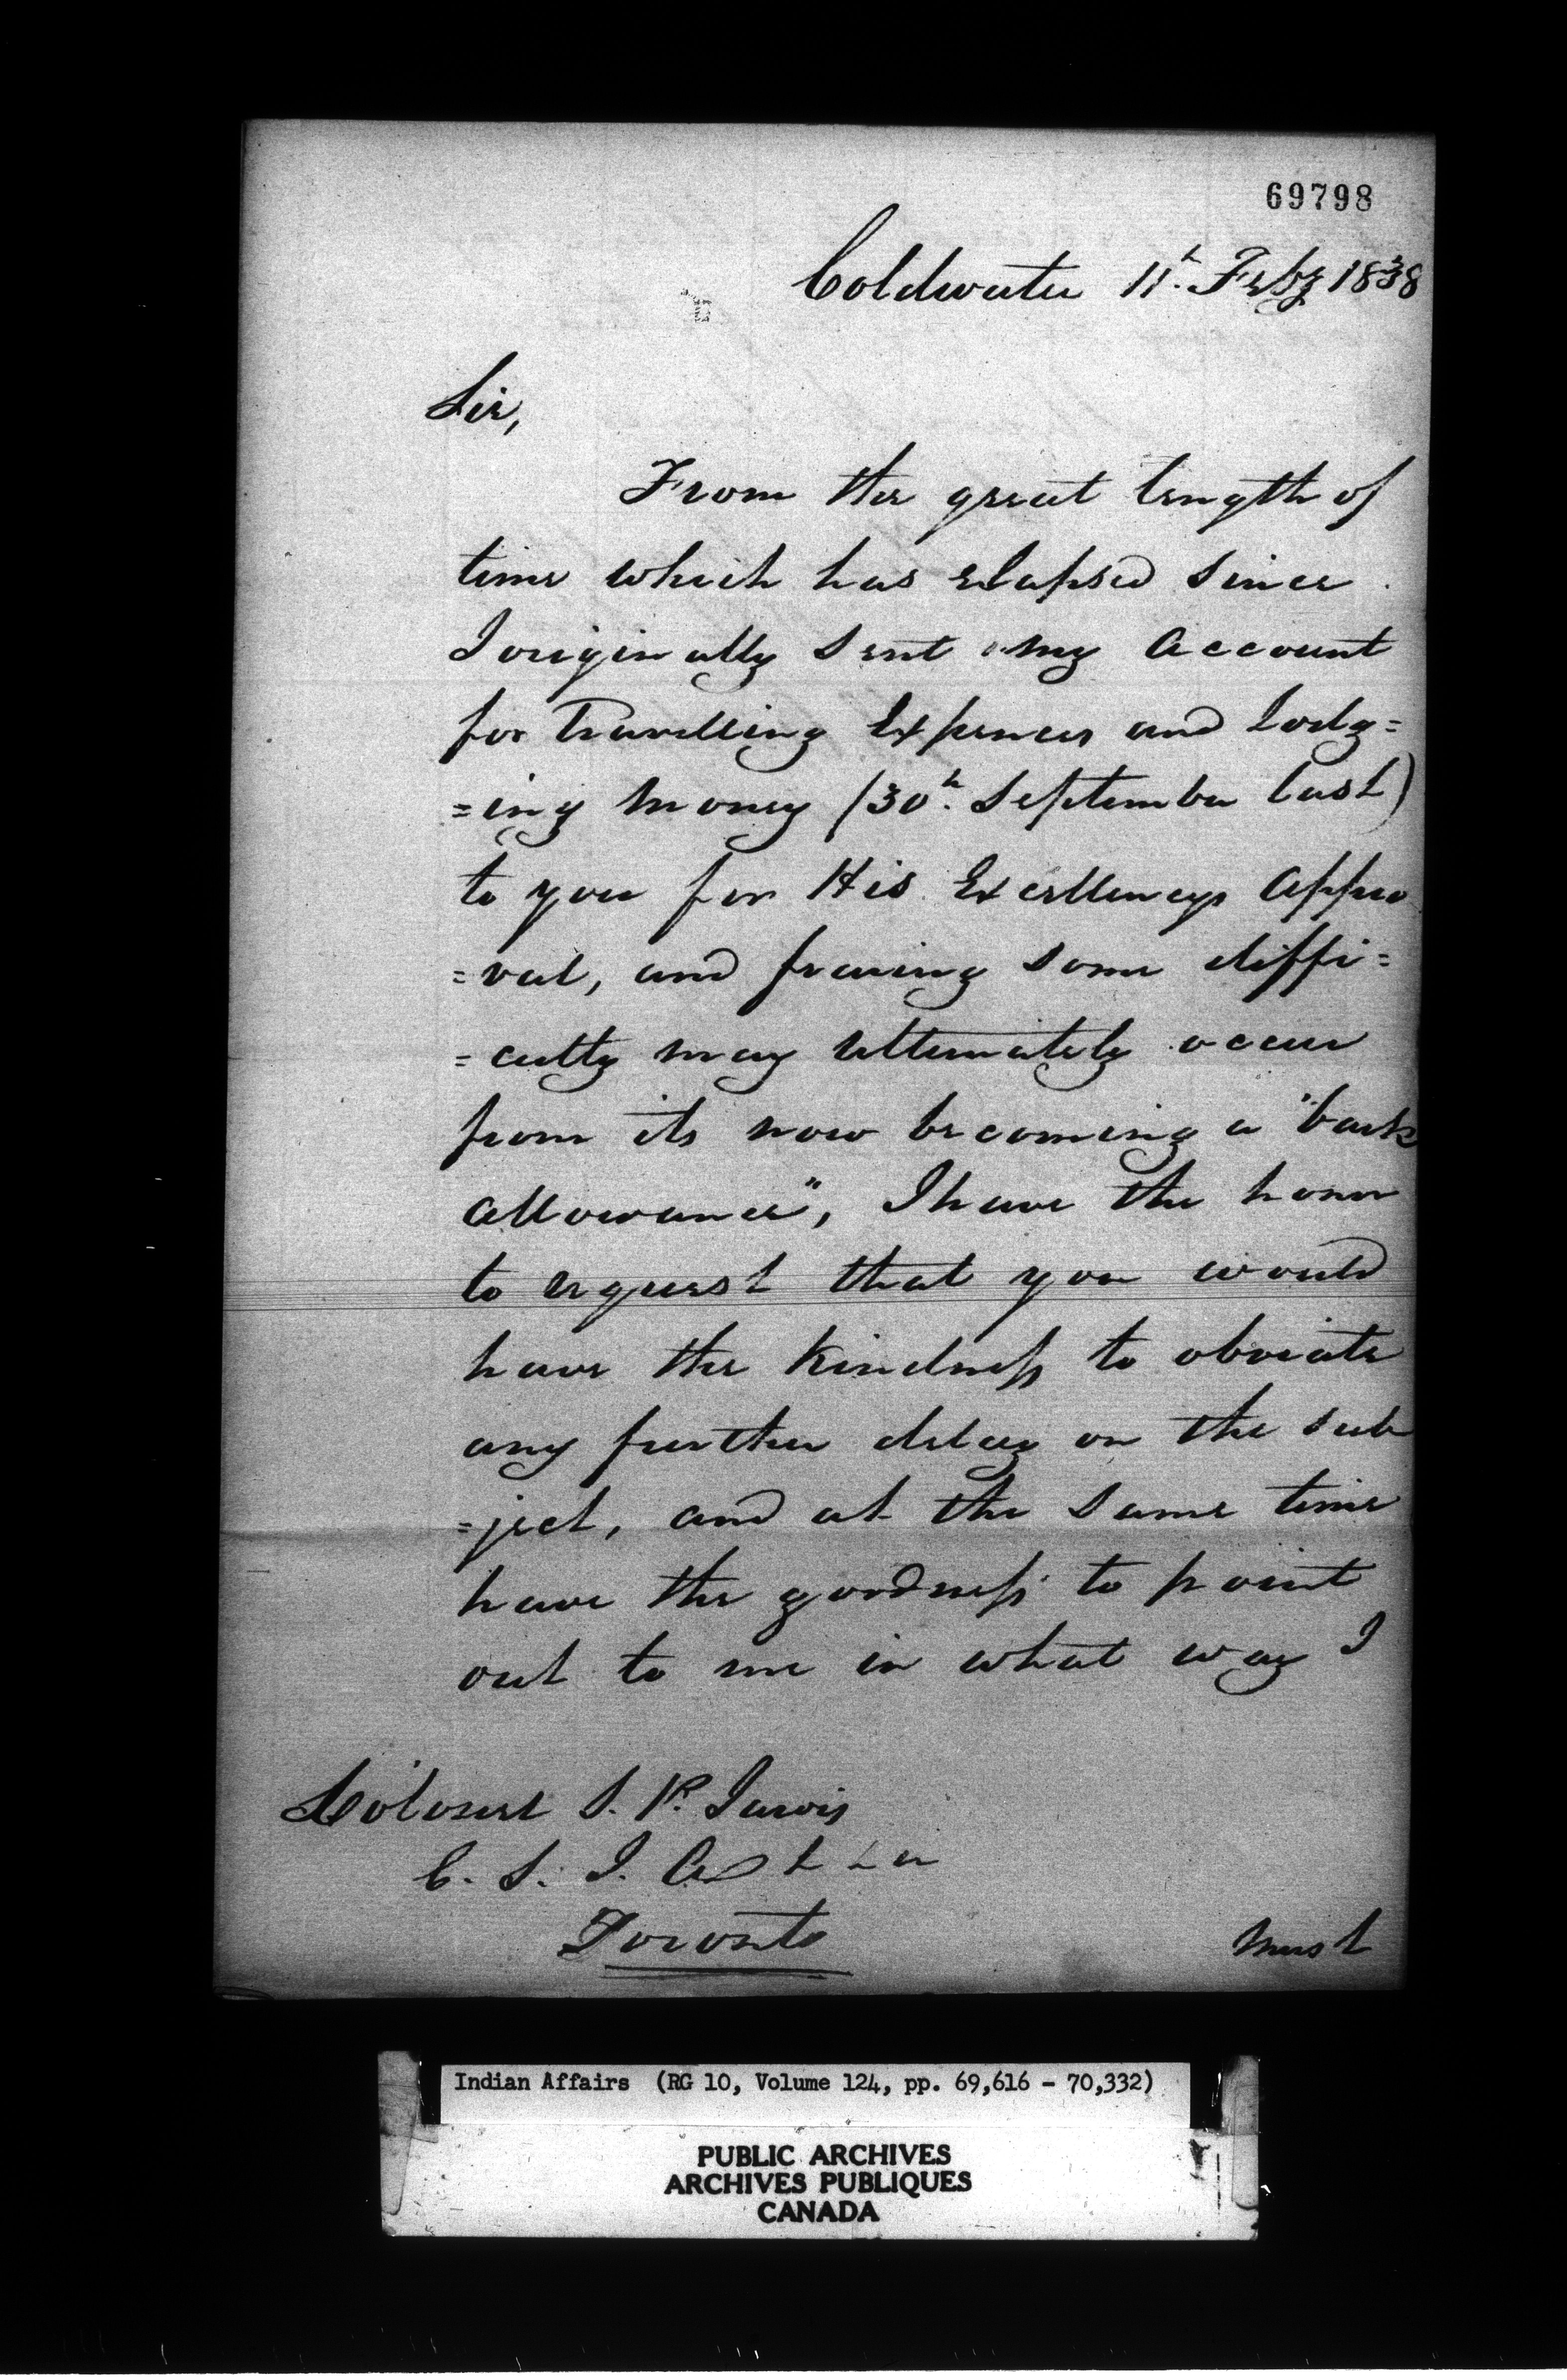 69798
Coldwater 11th Feby 1838
Sir,
From the great length of
time which has elapsed since
I originally sent my Account
for Travelling Expences and Lodg=
=ing Money (30th September last)
to you for His Excellencys Appro
=val, and fearing some diffi=
=culty may ultimately occur
from its now becoming a "back
allowance", I have the honor
to request that you would
have the kindness to obviate
any further delay on the sub
=ject, and at the same time
have the goodness to point
out to me in what way I
Colonel S. P. Jarvis
C. S. I. A
Toronto
must
Indian Affairs (RG 10, Volume 124, pp. 69,616 - 70,332)
PUBLIC ARCHIVES
ARCHIVES PUBLIQUES
CANADA